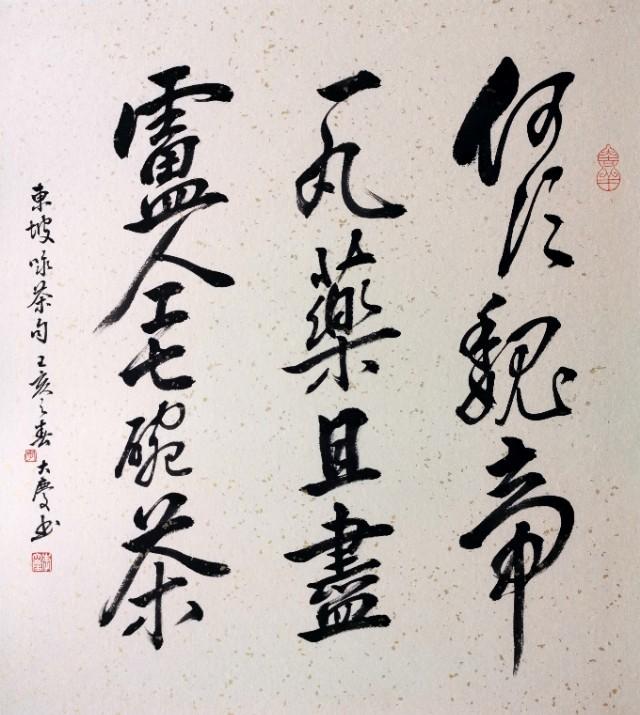 何須魏帝
一丸藥且盡
盧仝七碗茶
東坡咏茶句 己亥之春 大慶书